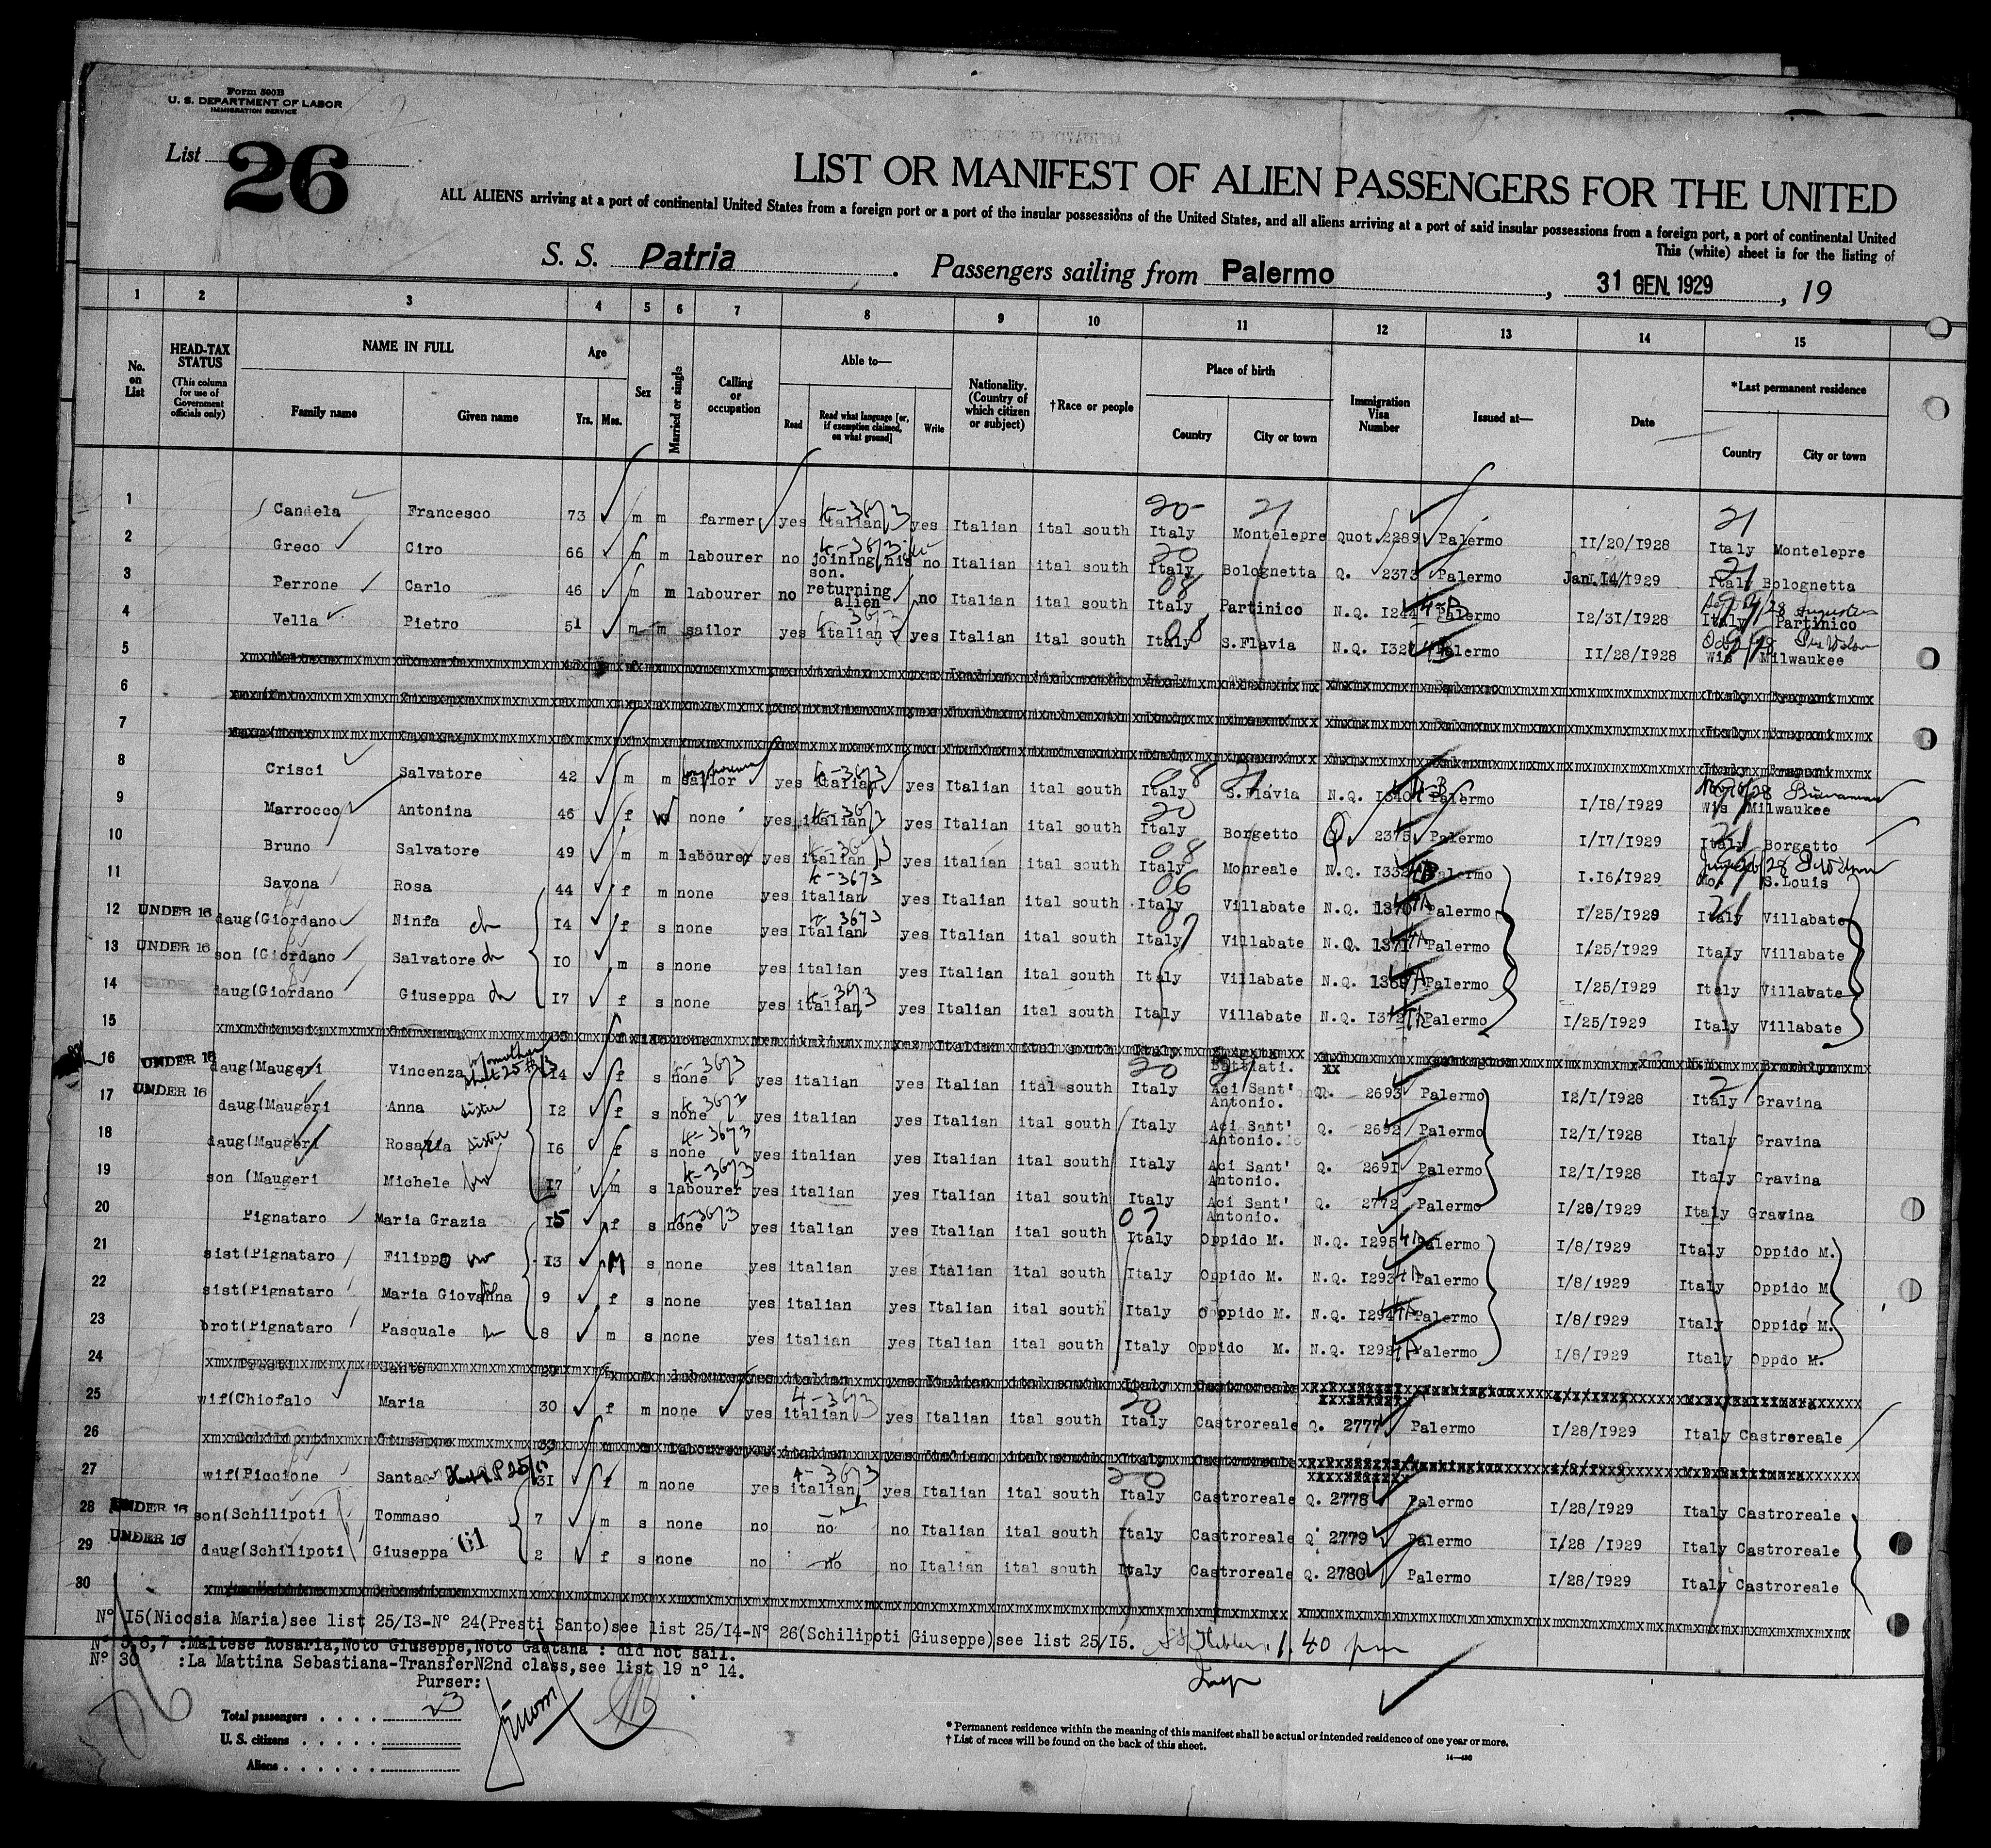 Form 500B
U. S. DEPARTMENT OF LABOR
IMMIGRATION SERVICE
List 26
LIST OR MANIFEST OF ALIEN PASSENGERS FOR THE UNITED
ALL ALIENS arriving at a port of continental United States from a foreign port or a port of the insular possessions of the United States, and all aliens arriving at a port of said insular possessions from a foreign port, a port of continental United
This (white) sheet is for the listing of
S. S. Patria. Passengers sailing from Palermo, 31 GEN. 1929, 19
1 2 3 4 5 6 7 8 9 10 11 12 13 14 15
No. on List
HEAD-TAX STATUS (This column for use of Government officials only)
NAME IN FULL Family name Given name
Age Yrs. Mos.
Sex
Married or single
Calling or occupation
Able to— Read Read what language [or, if exemption claimed, on what ground] Write
Nationality. (Country of which citizen or subject)
†Race or people
Place of birth Country City or town
Immigration Visa Number
Issued at—
Date
*Last permanent residence Country City or town
1 Candela Francesco 73 m m farmer yes italian 4-3673 yes Italian ital south 20 Italy 21 Montelepre Quot 2289 Palermo 11/20/1928 21 Italy Montelepre
2 Greco Ciro 66 m m labourer no joining his son. no Italian ital south 20 Italy Bolognetta Q. 2373 Palermo Jan. 14/1929 21 Italy Bolognetta
3 Perrone Carlo 46 m m labourer no returning alien no Italian ital south 08 Italy Partinico N.Q. 1244 4-B Palermo 12/31/1928 Italy Partinico
4 Vella Pietro 51 m m sailor yes italian yes Italian ital south 08 Italy S.Flavia N.Q. 1327 Palermo 11/28/1928 Wis Milwaukee
5
6
7
8 Crisci Salvatore 42 m m sailor yes italian 4-3673 yes Italian ital south 08 Italy S.Flavia N.Q. 1340 Palermo 1/18/1929 Wis Milwaukee
9 Marrocco Antonina 46 f w none yes italian yes Italian ital south 20 Italy Borgetto Q 2375 Palermo 1/17/1929 Italy Borgetto
10 Bruno Salvatore 49 m m labourer yes italian yes italian ital south 08 Italy Monreale N.Q. 1332 Palermo 1.16/1929 Mo. S.Louis
11 Savona Rosa 44 f m none yes italian 4-3673 yes Italian ital south 06 Italy Villabate N.Q. 1370 Palermo 1/25/1929 21 Italy Villabate
12 UNDER 16 daug(Giordano Ninfa 14 f s none yes Italian 4-3673 yes Italian ital south 07 Italy Villabate N.Q. 1371 Palermo 1/25/1929 Italy Villabate
13 UNDER 16 son (Giordano Salvatore 10 m s none yes italian yes Italian ital south Italy Villabate N.Q. 1369 Palermo 1/25/1929 Italy Villabate
14 daug(Giordano Giuseppa 17 f s none yes italian 4-3673 yes Italian ital south Italy Villabate N.Q. 1372 Palermo 1/25/1929 Italy Villabate
15
16 UNDER 16 daug(Maugeri Vincenza 14 f s none 4-3673 yes italian yes Italian ital south 20 Italy Aci Sant' Antonio. Q. 2693 Palermo 12/1/1928 Italy Gravina
17 UNDER 16 daug(Maugeri Anna sister 12 f s none 4-3673 yes italian yes Italian ital south Italy Aci Sant' Antonio. Q. 2692 Palermo 12/1/1928 Italy Gravina
18 daug(Maugeri Rosaria sister 16 f s none 4-3673 yes italian yes Italian ital south Italy Aci Sant' Antonio. Q. 2691 Palermo 12/1/1928 Italy Gravina
19 son (Maugeri Michele 17 m s labourer 4-3673 yes italian yes Italian ital south Italy Aci Sant' Antonio. Q. 2772 Palermo 1/28/1929 Italy Gravina
20 Pignataro Maria Grazia 15 f s none 4-3673 yes italian yes Italian ital south 07 Italy Oppido M. N.Q. 1295 Palermo 1/8/1929 Italy Oppido M.
21 sist(Pignataro Filippo 13 M s none yes italian yes Italian ital south Italy Oppido M. N.Q. 1293 Palermo 1/8/1929 Italy Oppido M.
22 sist(Pignataro Maria Giovanna 9 f s none yes italian yes Italian ital south Italy Oppido M. N.Q. 1294 Palermo 1/8/1929 Italy Oppido M.
23 brot(Pignataro Pasquale 8 m s none yes italian yes Italian ital south Italy Oppido M. N.Q. 1292 Palermo 1/8/1929 Italy Oppdo M.
24
25 wif(Chiofalo Maria 30 f m none yes italian 4-3673 yes Italian ital south 20 Italy Castroreale Q. 2777 Palermo 1/28/1929 Italy Castroreale
26
27 wif(Piccione Santa 31 f m none yes italian 4-3673 yes Italian ital south 20 Italy Castroreale Q. 2778 Palermo 1/28/1929 Italy Castroreale
28 UNDER 16 son(Schilipoti Tommaso 7 m s none no no no Italian ital south Italy Castroreale Q. 2779 Palermo 1/28 /1929 Italy Castroreale
29 UNDER 16 daug(Schilipoti Giuseppa 61 2 f s none no no no Italian ital south Italy Castroreale Q. 2780 Palermo 1/28/1929 Italy Castroreale
30
N° 15(Nicosia Maria)see list 25/13-N° 24(Presti Santo)see list 25/14-N° 26(Schilipoti Giuseppe)see list 25/15. 1.40 pm
N° 5,6,7 :Maltese Rosaria,Noto Giuseppe,Noto Gaetana : did not sail.
N° 30 :La Mattina Sebastiana-TransferN2nd class,see list 19 n° 14.
Purser:
Total passengers . . . . 23
U. S. citizens . . . . .
Aliens . . . . . .
* Permanent residence within the meaning of this manifest shall be actual or intended residence of one year or more.
† List of races will be found on the back of this sheet.
14—430